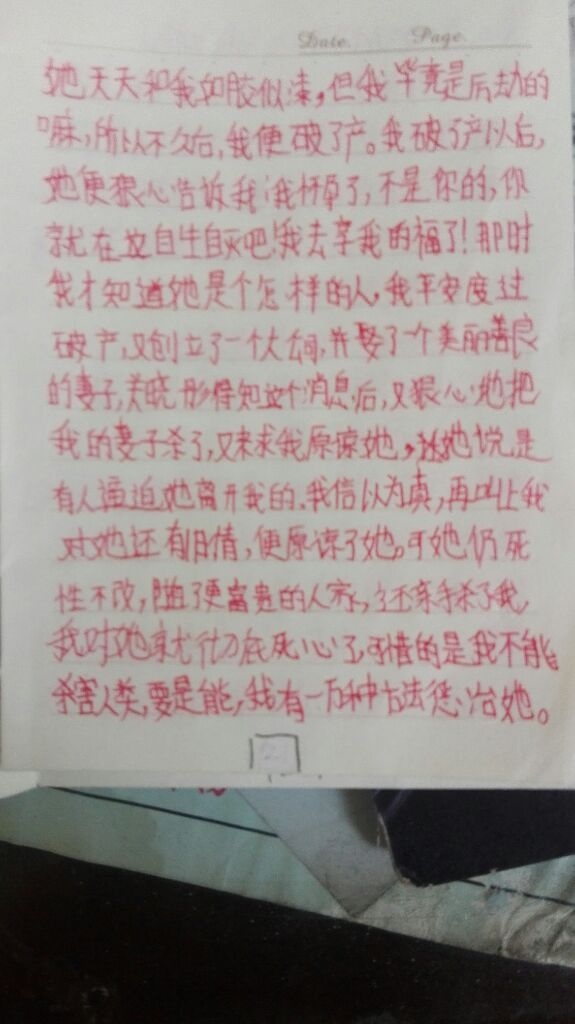 Date. Page.
她天天和我如胶似漆，但我毕竟是后去加的
嘛，所以不久后，我便破了产。我破了产以后，
她便狠心告诉我：我怀孕了，不是你的，你
就在这自生自灭吧！我去享我的福了！那时
我才知道她是个怎样的人，我平安度过
破产，又创立了一个大公司，并娶了一个美丽善良
的妻子，关晓彤得知这个消息后，又狠心地把
我的妻子杀了，又来求我原谅她，她说是
有人逼迫她离开我的，我信以为真，再加上我
对她还有旧情，便原谅了她。可她仍死
性不改，随了更富贵的人家，还亲手杀了我，
我对她就彻底死心了，可惜的是我不能
杀害人类，要是能，我有一万种方法惩治她。
2